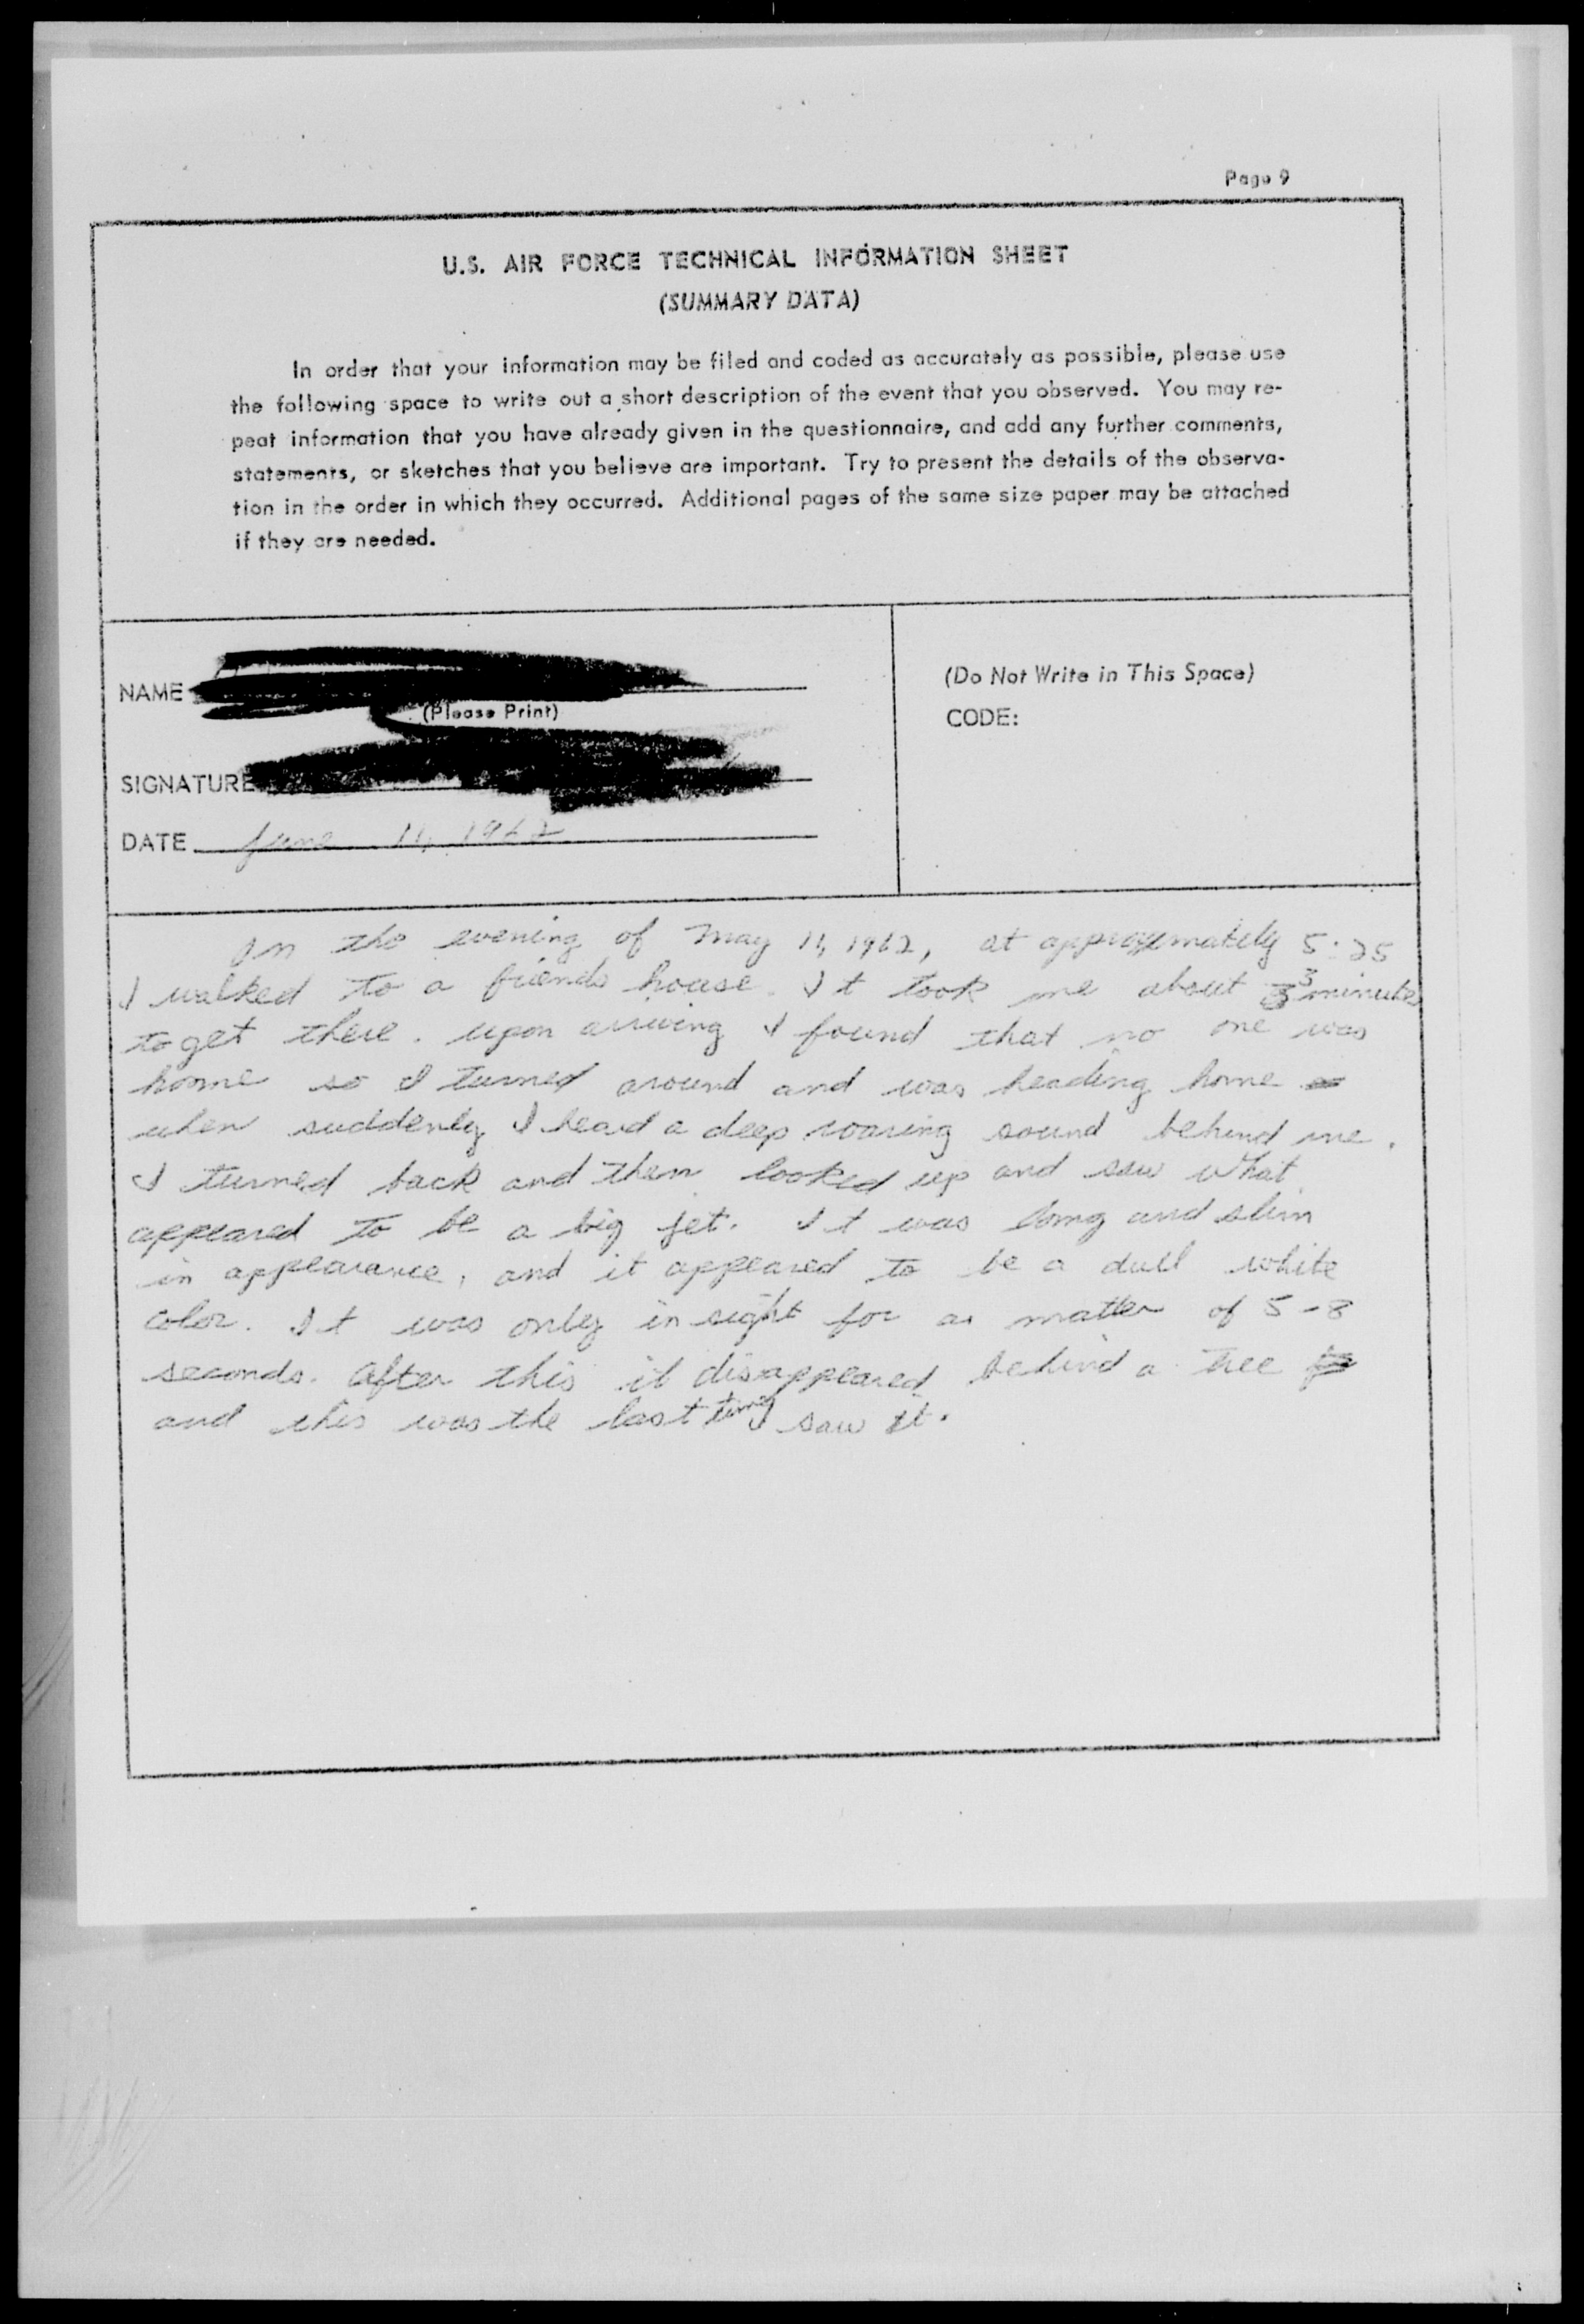 Page 9
U.S. AIR FORCE TECHNICAL INFORMATION SHEET
(SUMMARY DATA)
In order that your information may be filed and coded as accurately as possible, please use
the following space to write out a short description of the event that you observed. You may re-
peat information that you have already given in the questionnaire, and add any further comments,
statements, or sketches that you believe are important. Try to present the details of the observa-
tion in the order in which they occurred. Additional pages of the same size paper may be attached
if they are needed.
NAME
(Please Print)
SIGNATURE
DATE June 11, 1962
(Do Not Write in This Space)
CODE:
In the evening of May 11, 1962, at approxymately 5:25
I walked to a friends house. It took me about 3 minutes
to get there. upon arriving I found that no one was
home so I turned around and was heading home
when suddenly I heard a deep roaring sound behind me.
I turned back and then looked up and saw what
appeared to be a big jet. It was long and slim
in appearance, and it appeared to be a dull white
color. It was only in sight for a matter of 5-8
seconds. After this it disappeared behind a tree
and this was the last time I saw it.